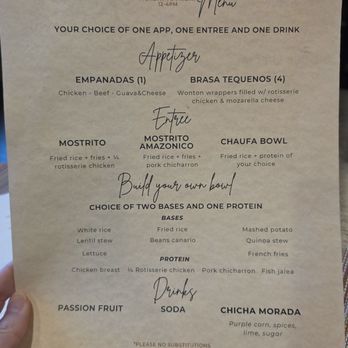 12-4PM
Menu
YOUR CHOICE OF ONE APP, ONE ENTREE AND ONE DRINK
Appetizer
EMPANADAS (1)
Chicken - Beef - Guava&Cheese
BRASA TEQUENOS (4)
Wonton wrappers filled w/ rotisserie
chicken & mozarella cheese
Entree
MOSTRITO
Fried rice + fries + ¼
rotisserie chicken
MOSTRITO
AMAZONICO
Fried rice + fries +
pork chicharron
CHAUFA BOWL
Fried rice + protein of
your choice
Build your own bowl
CHOICE OF TWO BASES AND ONE PROTEIN
BASES
White rice Fried rice Mashed potato
Lentil stew Beans canario Quinoa stew
Lettuce French fries
PROTEIN
Chicken breast ¼ Rotisserie chicken Pork chicharron Fish jalea
Drinks
PASSION FRUIT
SODA
CHICHA MORADA
Purple corn, spices,
lime, sugar
*PLEASE NO SUBSTITUTIONS